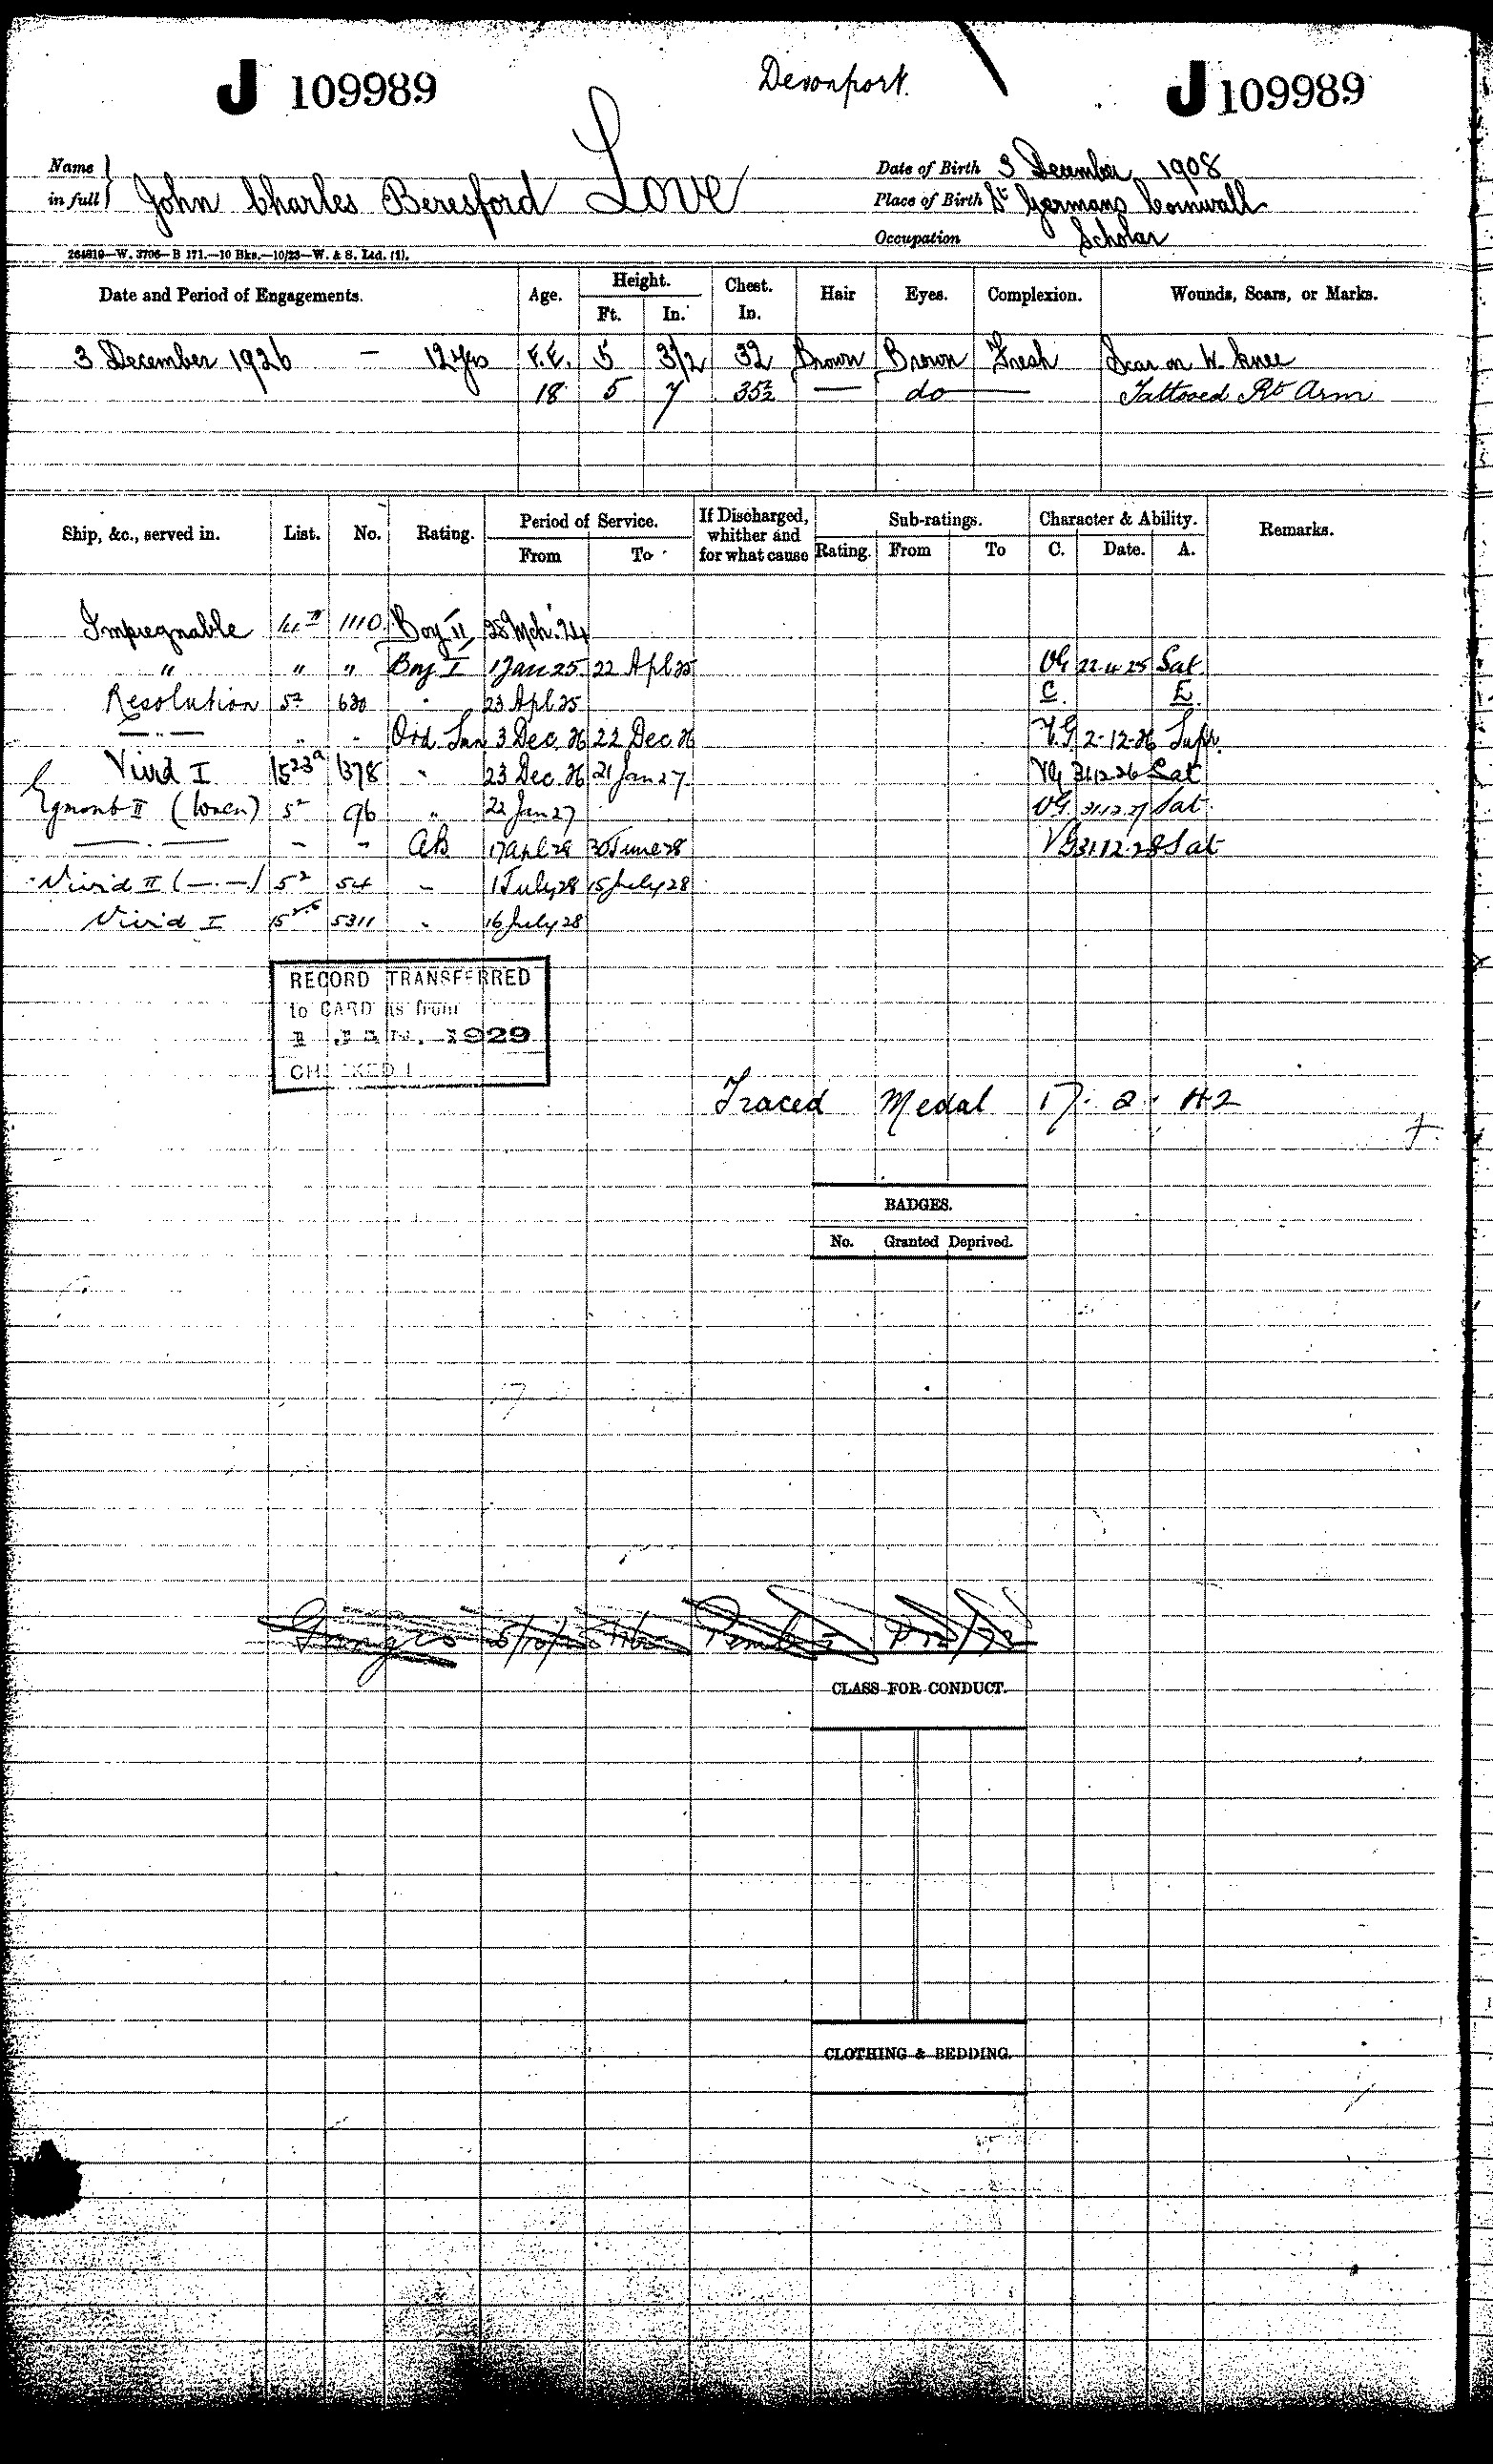 J 109989 Devonport. J 109989
Name in full } John Charles Beresford Love
Date of Birth 3 December 1908
Place of Birth St Germans Cornwall
Occupation Scholar
264819—W. 3706—B 171.—10 Bks.—10/23—W. & S. Ltd. (1).
Date and Period of Engagements. Age. Height. Ft. In. Chest. In. Hair Eyes. Complexion. Wounds, Scars, or Marks.
3 December 1926 — 12 Yrs F.E. 5 3½ 32 Brown Brown Fresh Scar on W. knee
18 5 7 35½ — do — Tattooed Rt Arm
Ship, &c., served in. List. No. Rating. Period of Service. From To If Discharged, whither and for what cause Sub-ratings. Rating. From To Character & Ability. C. Date. A. Remarks.
Impregnable 1110 Boy II 28 Mch. 24
" " " Boy I 1 Jan 25 22 Apl 25 VG 22.4.25 Sat
Resolution 5² 630 " 23 Apl 25 C. E.
— " — " " Ord. Smn 3 Dec. 26 22 Dec. 26 V.G 2-12-26 Supr.
Vivid I 1378 " 23 Dec. 26 21 Jan 27 VG 31.12.26 Sat
Egmont II (Wren) 5² 96 " 22 Jan 27 VG 31.12.27 Sat
— . — - - AB 17 Apl 28 30 June 28 VG 31.12.28 Sat
Vivid II (—.—) 5² 54 " 1 July 28 15 July 28
Vivid I 5311 " 16 July 28
RECORD TRANSFERRED
to CARD as from
1 JAN. 1929
CHECKED
Traced Medal 17. 2. 42
BADGES.
No. Granted Deprived.
Ganges
CLASS FOR CONDUCT.
CLOTHING & BEDDING.